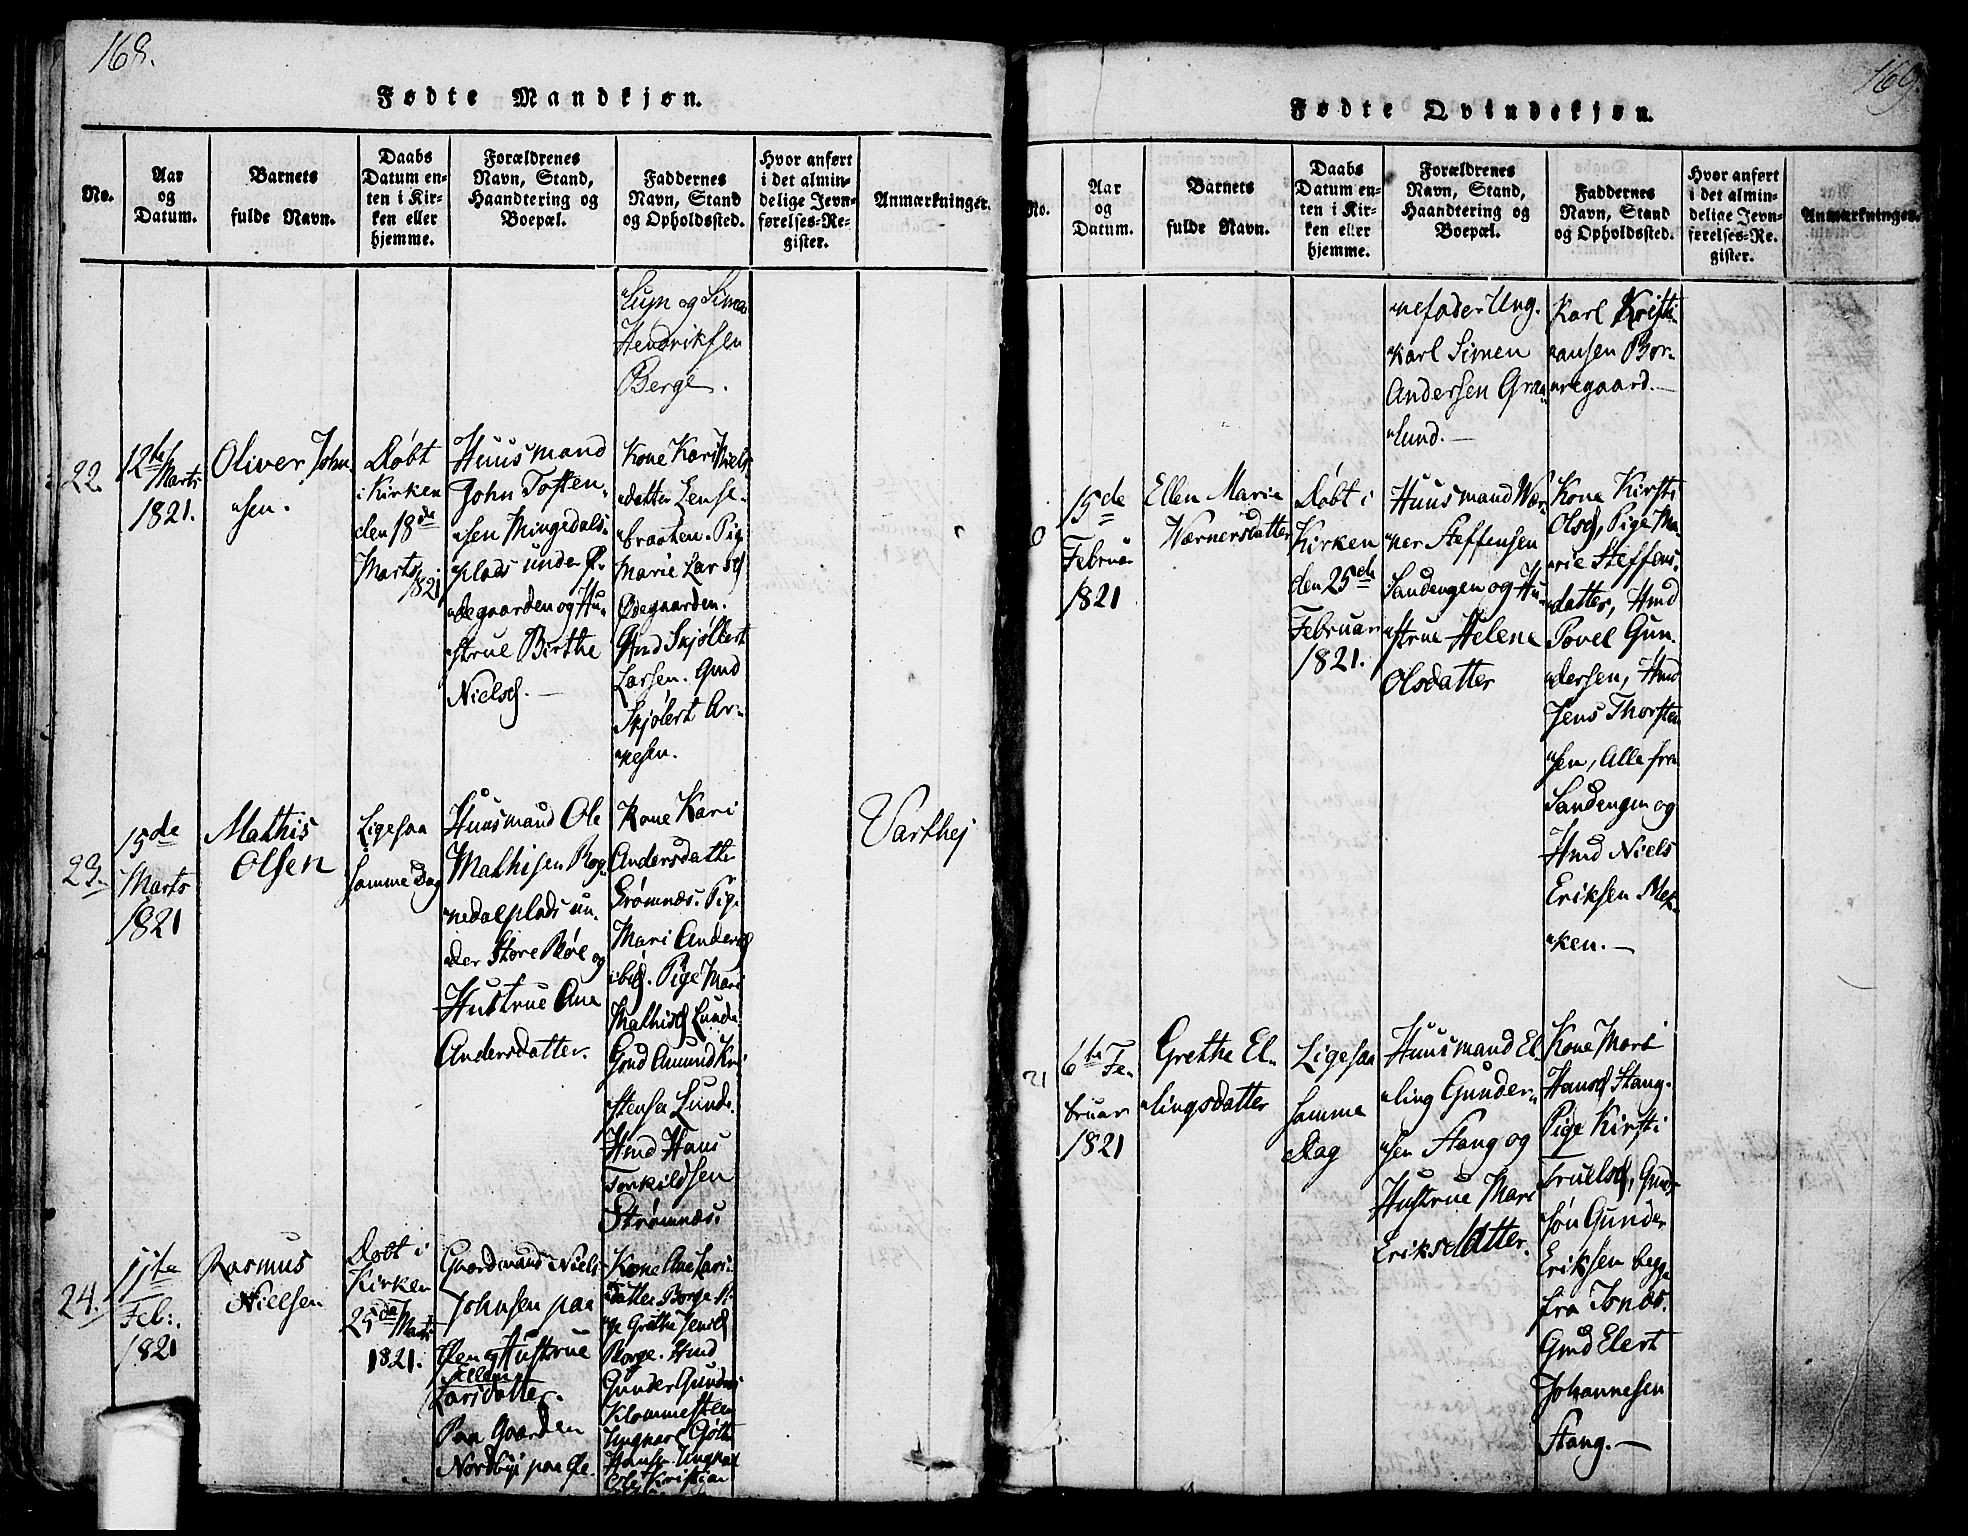 168.
Fødte Mandkjøn.
No.
Aar
og
Datum.
Barnets
fulde Navn.
Daabs
Datum en-
ten i Kir-
ken eller
hjemme.
Forældrenes
Navn, Stand,
Haandtering og
Boepæl.
Faddernes
Navn, Stand
og Opholdssted.
Hvor anført
i det almin-
delige Jevn-
førelses-Re-
gister.
Anmærkninger.
og Simen
Hendriksen
Berge.
22.
12te
Marts
1821.
Oliver John
sen.
Døbt
i Kirken
den 18de
Marts
1821
Huusmand
John Tosten-
sen Mingedals
plads under Ø-
degaarden og Hu-
strue Birthe
Nielsd. —
Kone Kari Niels
datter Lense-
braaten. Pig
Marie Larsd
Ødegaarden.
Gmd Skjøllert
Larsen. Gmd
Skjølert Ar-
nesen.
23.
15de
Marts
1821
Mathis
Olsen
Ligesaa
samme Dag
Huusmand Ole
Mathisen Bog-
nedalplads un-
der Store Bøe og
Hustrue Ane
Andersdatter.
Kone Kari
Andersdatte
Strømnæs. Pig.
Mari Andersd
ibid. Pige Mari
Mathisd Lunde
Gmd Amund Kri
stensen Lunde.
Hmd Hans
Torkildsen
Strømnæs.
Varthej
24.
11te
Feb:.
1821
Rasmus
Nielsen
Døbt i
Kirken
25de Marts
1821.
Gaardmand Niels
Johnsen paa
Øen og Hustrue
Ellen
Larsdatter.
Paa Gaarden
Nordbye paa Øe.
Kone Ane Lari-
datter Borge Pi-
ge Grethe Jensd
Borge. Hmd
Gunder Gunders
Klommesteen
Ungkarl
Hansen Ungkarl
Ole Kristian
169.
Fødte Qvindekjøn.
No.
Aar
og
Datum.
Barnets
fulde Navn.
Daabs
Datum en-
ten i Kir-
ken eller
hjemme.
Forældrenes
Navn, Stand,
Haandtering og
Boepæl.
Faddernes
Navn, Stand
og Opholdssted.
Hvor anført
i det almin-
delige Jevn-
førelses-Re-
gister.
Anmærkninger.
nefader Ung-
karl Simen
Andersen Gra-
lund. —
Karl Kristi-
ansen Bor-
regaard. —
15de
Februar
1821
Ellen Marie
Wærnersdatter
Døbt i
Kirken
den 25de
Februar
1821.
Huusmand Wær-
ner Steffensen
Sandengen og Hu-
strue Helene
Olsdatter
Kone Kirsti
Olsd, Pige Ma-
rie Steffens-
datter, Hmd
Povel Gun-
dersen, Hmd
Jens Thorsten
sen, Alle fra
Sandengen og
Hmd Niels
Eriksen Mek-
ken. —
21
6te Fe-
bruar
1821
Grethe El-
lingsdatter
Ligesaa
samme
Dag
Huusmand El-
ling Gunder-
sen Stang og
Hustrue Mari
Eriksdatter.
Kone Mari
Hansd Stang.
Pige Kirsti
Truelsd, Gmds
søn Gunder
Eriksen begge
fra Tonæs.
Gmd Elert
Johannesen
Stang. —